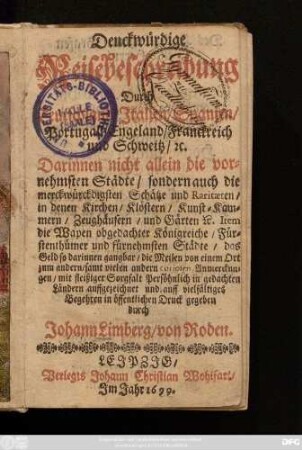 Denckwürdige
Reisebeschreibung
Durch
Teutschland/ Italien/ Spanien/
Portugall/ Engeland/ Franckreich
und Schweitz/ ꝛc.
Darinnen nicht allein die vor-
nehmsten Städte/ sondern auch die
merckwürdigsten Schätze und Raritæten/
in denen Kirchen/ Klöstern/ Kunst-Kam-
mern/ Zeughäusern/ und Gärten ꝛc. Item
die Wapen obgedachter Königreiche/ Für-
stenthümer und fürnehmsten Städte/ das
Geld so darinnen gangbar/ die Meilen von einem Ort
zum andern/ samt vielen andern curiosen Anmerckun-
gen/ mit fleißiger Sorgfalt Persöhnlich in gedachten
Ländern auffgezeichnet und auff vielfältiges
Begehren in öffentlichen Druck gegeben
durch
Johann Limberg/ von Roden.
LEIPZIG/
Verlegts Johann Christian Wohlfart/
Im Jahr 1699.
UNIVERSITÄTS-BIBLIOTHEK
HALLE
(SAALE)